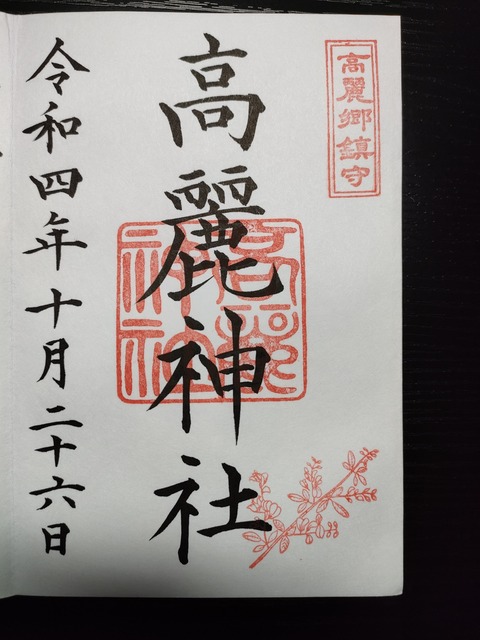 高麗郷鎮守
高麗神社
高麗
神社
令和四年十月二十六日